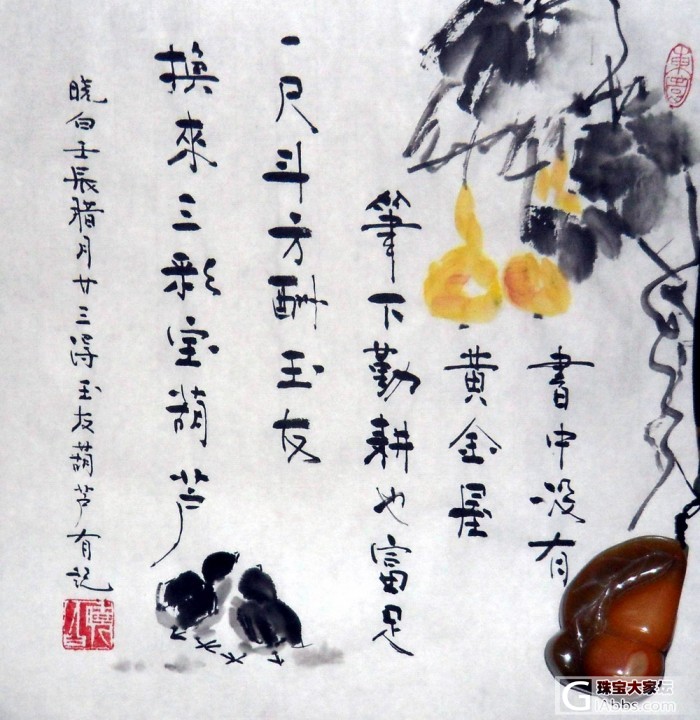 書中没有
黄金屋
筆下勤耕也富足
一尺斗方酬玉友
換來三彩宝葫芦
晓白壬辰腊月廿三得玉友葫芦有记
珠宝大家坛
iAbbs.com